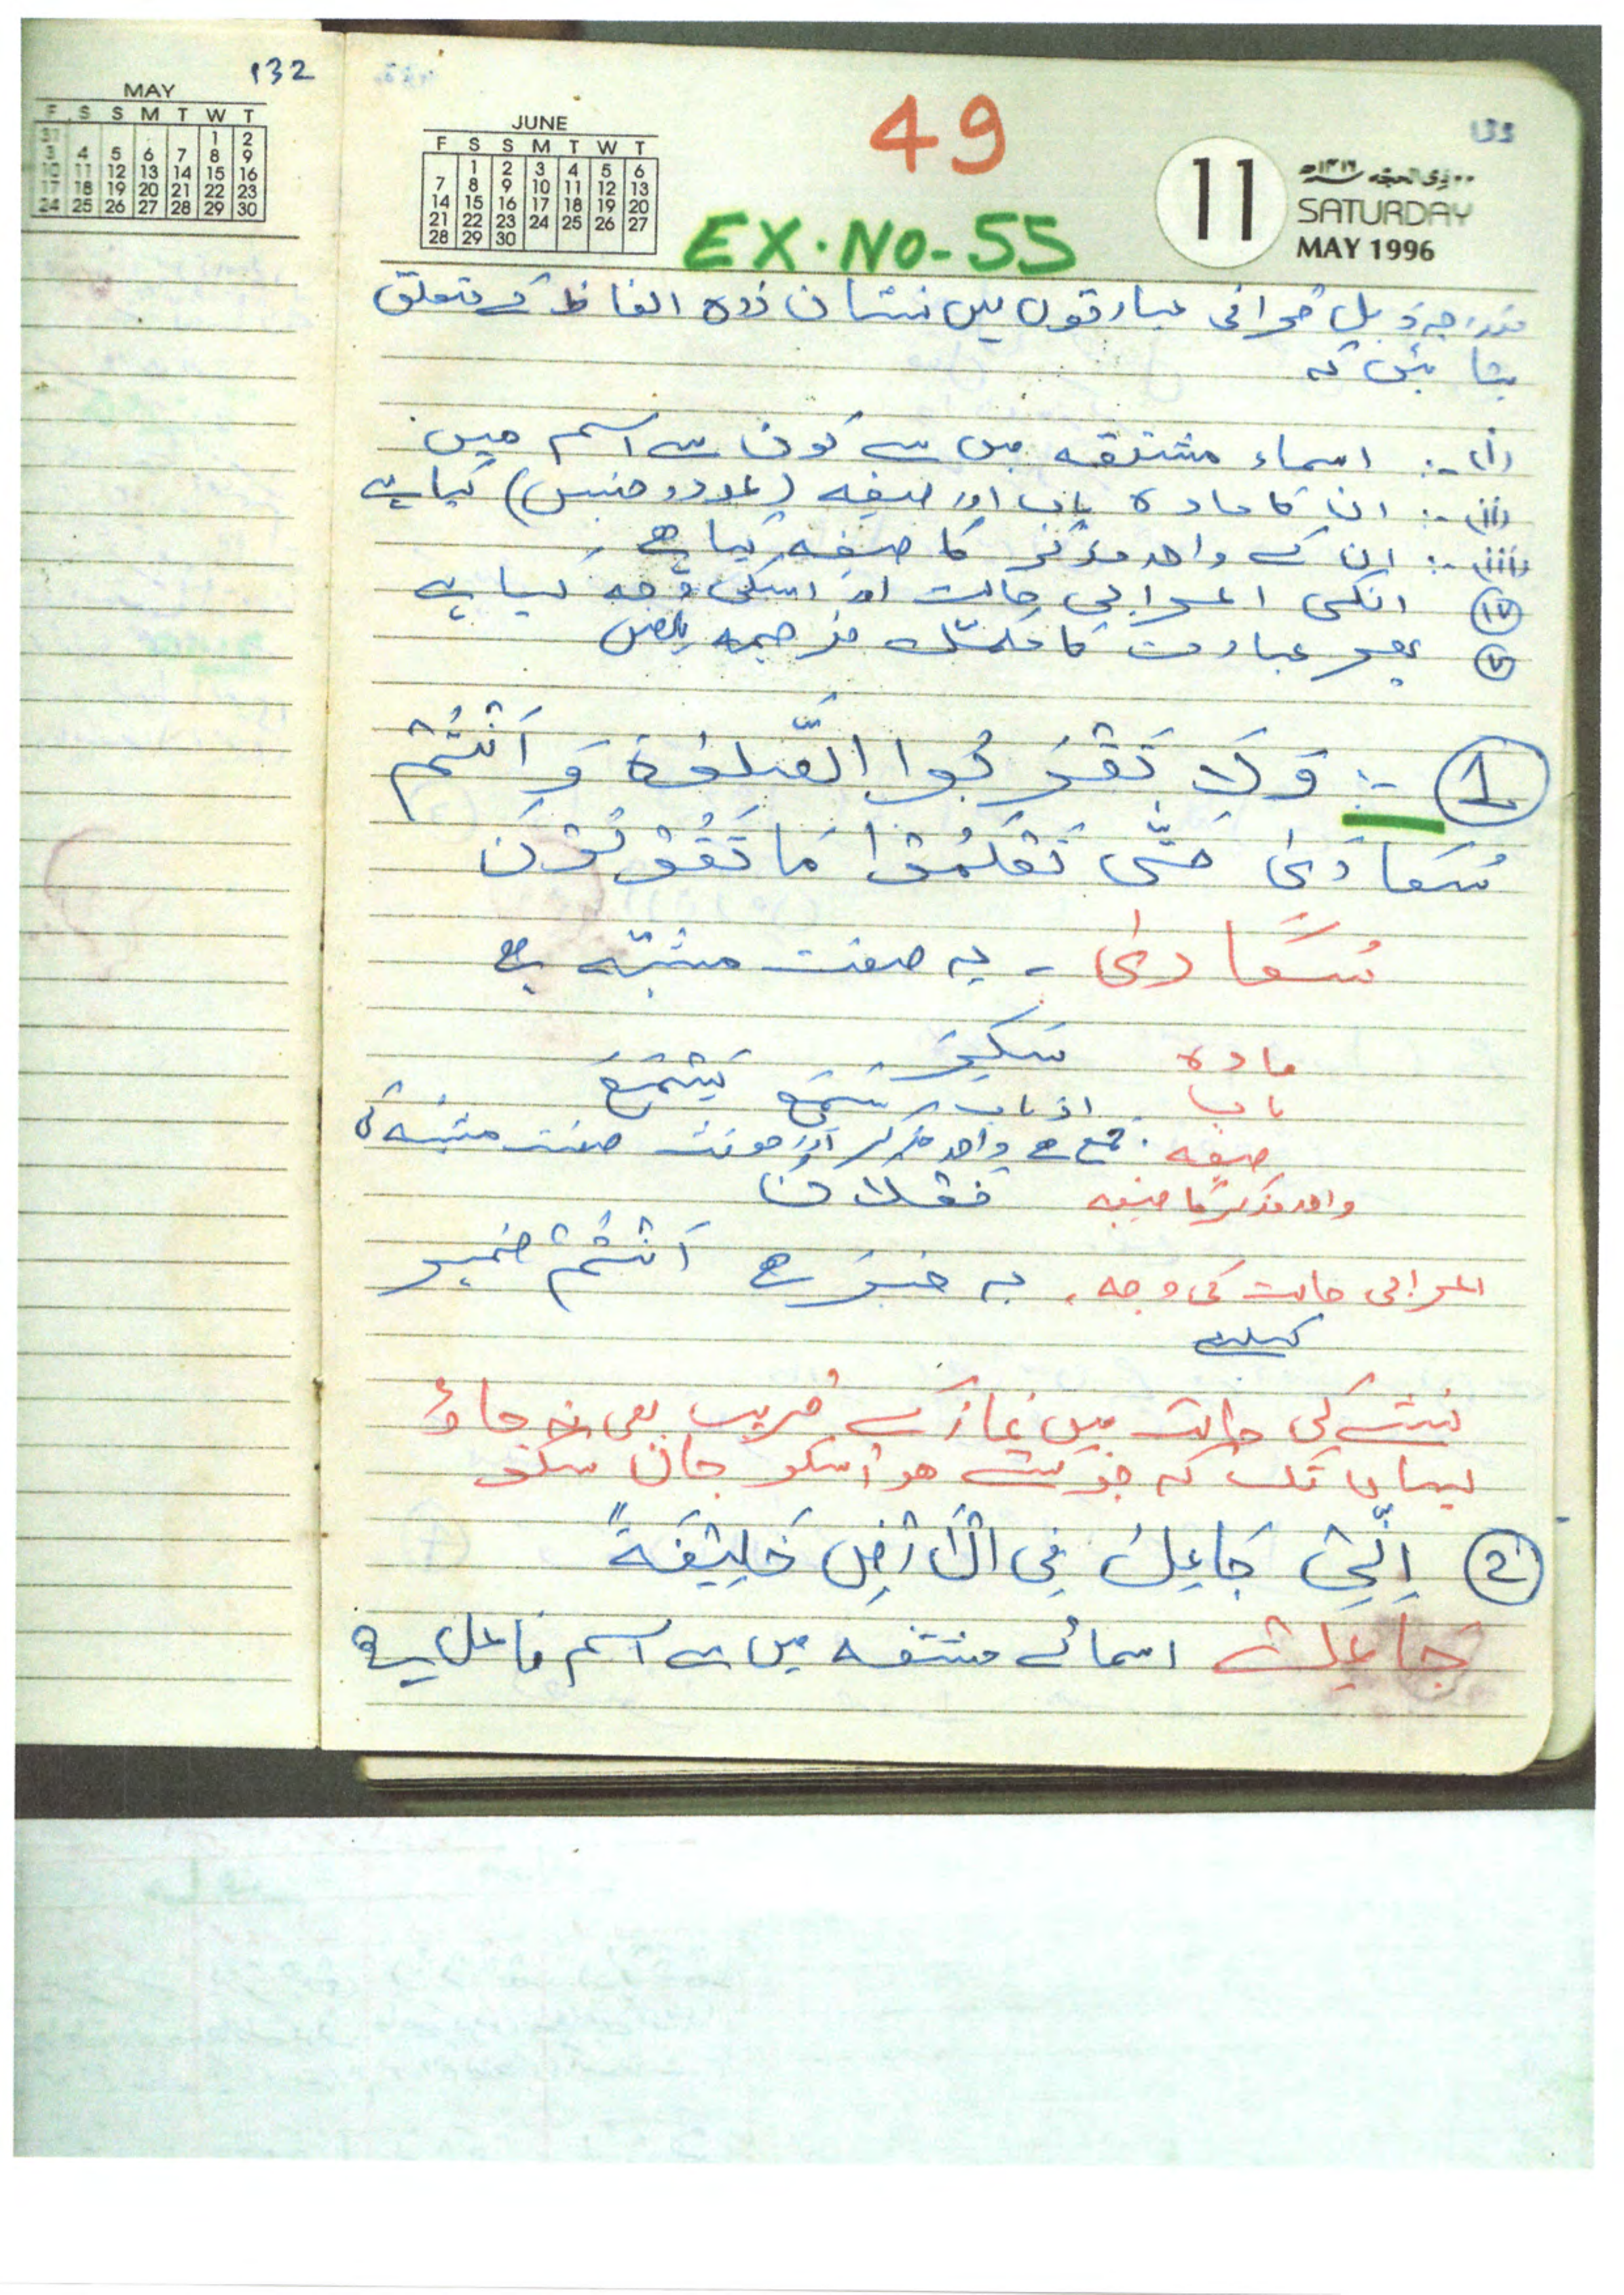 132
MAY
F S S M T W T
31 1 2
3 4 5 6 7 8 9
10 11 12 13 14 15 16
17 18 19 20 21 22 23
24 25 26 27 28 29 30
JUNE
F S S M T W T
1 2 3 4 5 6
7 8 9 10 11 12 13
14 15 16 17 18 19 20
21 22 23 24 25 26 27
28 29 30
49
EX. NO-55
11
SATURDAY
MAY 1996
مندرجہ ذیل قرآنی عبارتوں میں نشان زدہ الفاظ کے متعلق
بتائیں کہ
(i) :- اسماء مشتقہ میں سے کون سے اسم ھیں
(ii) :- ان کا مادہ باب اور صیغہ (عدد و جنس) کیا ہے
(iii) :- ان کے واحد مذکر کا صیغہ کیا ھے
(iv) انکی اعرابی حالت اور اسکی وجہ کیا ہے
(v) پھر عبارت کا مکمل ترجمہ لکھیں
(1) :- وَلَا تَقْرَبُوا الصَّلٰوةَ وَ اَنْتُمْ
سُكَارٰى حَتّٰى تَعْلَمُوْا مَا تَقُوْلُوْنَ
سُكَارٰى - یہ صفت مشبہ ہے
مادہ سَكِرَ
باب از باب سَمِعَ يَسْمَعُ
صیغہ . جمع ھے واحد مذکر اور مونث صفت مشبہ کی
واحد مذکر کا صیغہ فَعْلَانٌ
اعرابی حالت کی وجہ , یہ خبر ھے اَنْتُمْ ضمیر
کیلیے
نشے کی حالت میں نماز کے قریب بھی نہ جاؤ
یہاں تک کہ جو کہتے ھو اسکو جان سکو
(2) اِنِّیْ جَاعِلٌ فِی الْاَرْضِ خَلِيْفَةً
جَاعِلٌ اسمائے مشتقہ میں سے اسم فاعل ہے